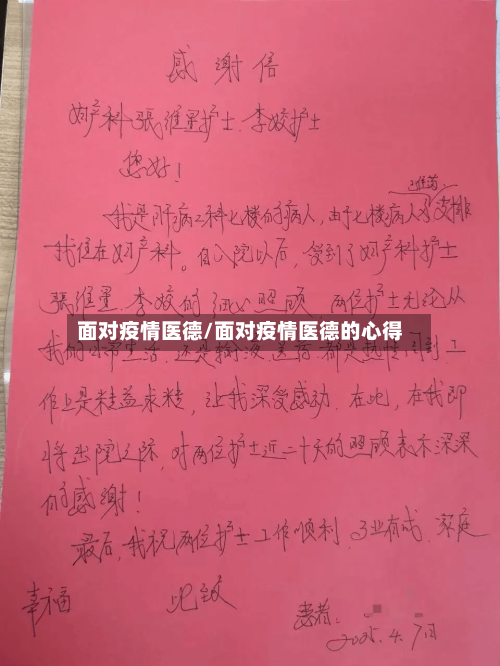 感谢信
妇产科张维星护士、李姣护士
您好！
我是肝病二科七楼的病人，由于七楼病人多安排
我住在妇产科。自入院以后，受到了妇产科护士
张维星、李姣的细心照顾 两位护士无论从
面对疫情医德/面对疫情医德的心得
我的日常生活，还是输液送药 都是热情周到工
作上是精益求精，让我深受感动，在此，在我即
将出院之际，对两位护士近二十天的照顾表示深深
的感谢！
最后，我祝两位护士工作顺利，事业有成，家庭
幸福 此致
患者：
2025.4.7日